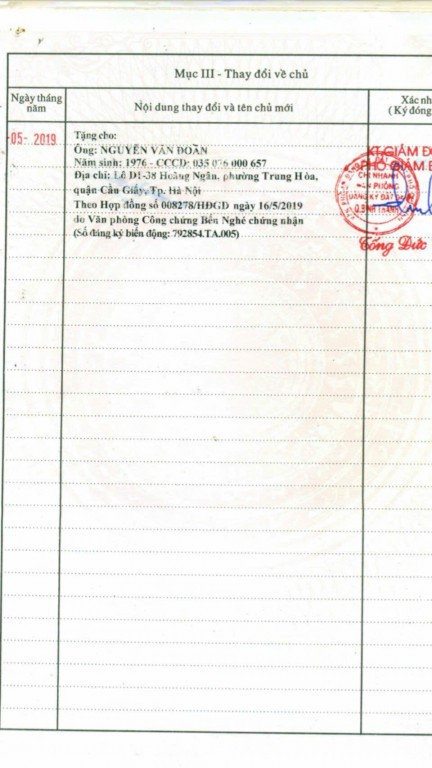 Mục III - Thay đổi về chủ
Ngày tháng
năm
Nội dung thay đổi và tên chủ mới
Xác nh
( Ký đóng
-05- 2019
Tặng cho:
Ông: NGUYỄN VĂN ĐOÀN
Năm sinh: 1976 - CCCD: 035 076 000 657
Địa chỉ: Lô D1-38 Hoàng Ngân, phường Trung Hòa,
quận Cầu Giấy, Tp. Hà Nội
Theo Hợp đồng số 008278/HĐGD ngày 16/5/2019
do Văn phòng Công chứng Bến Nghé chứng nhận
(Số đăng ký biến động: 792854.TA.005)
KT.GIÁM Đ
PHÓ GIÁM Đ
CHI NHÁNH
VĂN PHÒNG
ĐĂNG KÝ ĐẤT ĐAI
Q.BÌNH THẠNH
Tống Đức